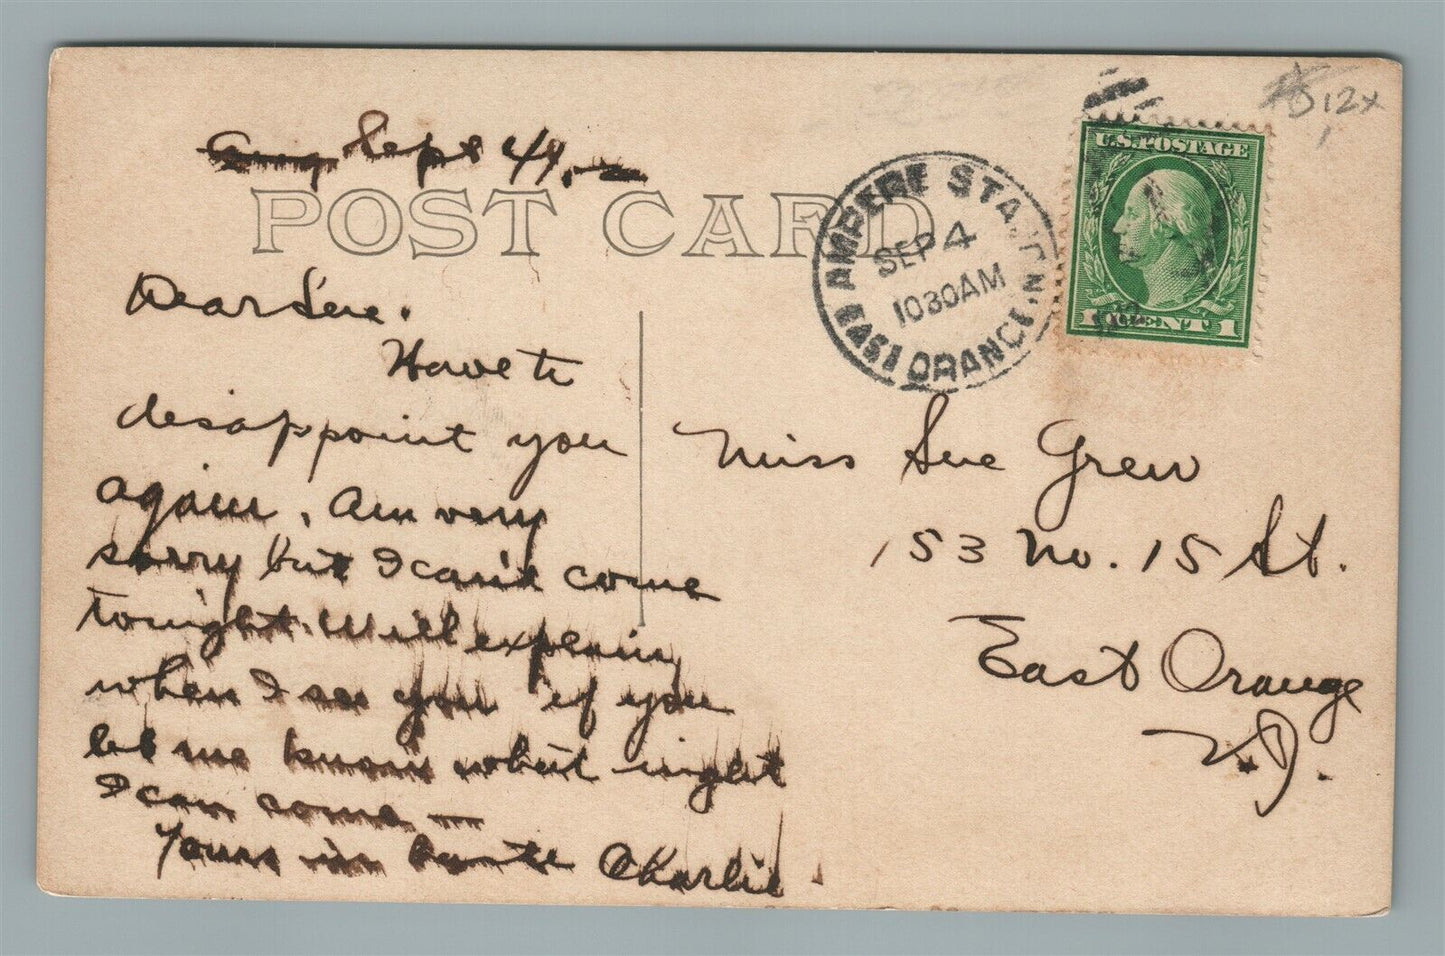 Aug Sept 4th.
POST CARD
AMPERE STATION
SEP 4
1030AM
EAST ORANGE N
U.S. POSTAGE
1 CENT 1
12x
Dear Sue.
Have to
disappoint you
again, Am very
sorry but I can't come
tonight. Will explain
when I see you if you
let me know what night
I can come —
Yours in haste Charlie
Miss Sue Grew
153 No. 15 St.
East Orange
N.J.